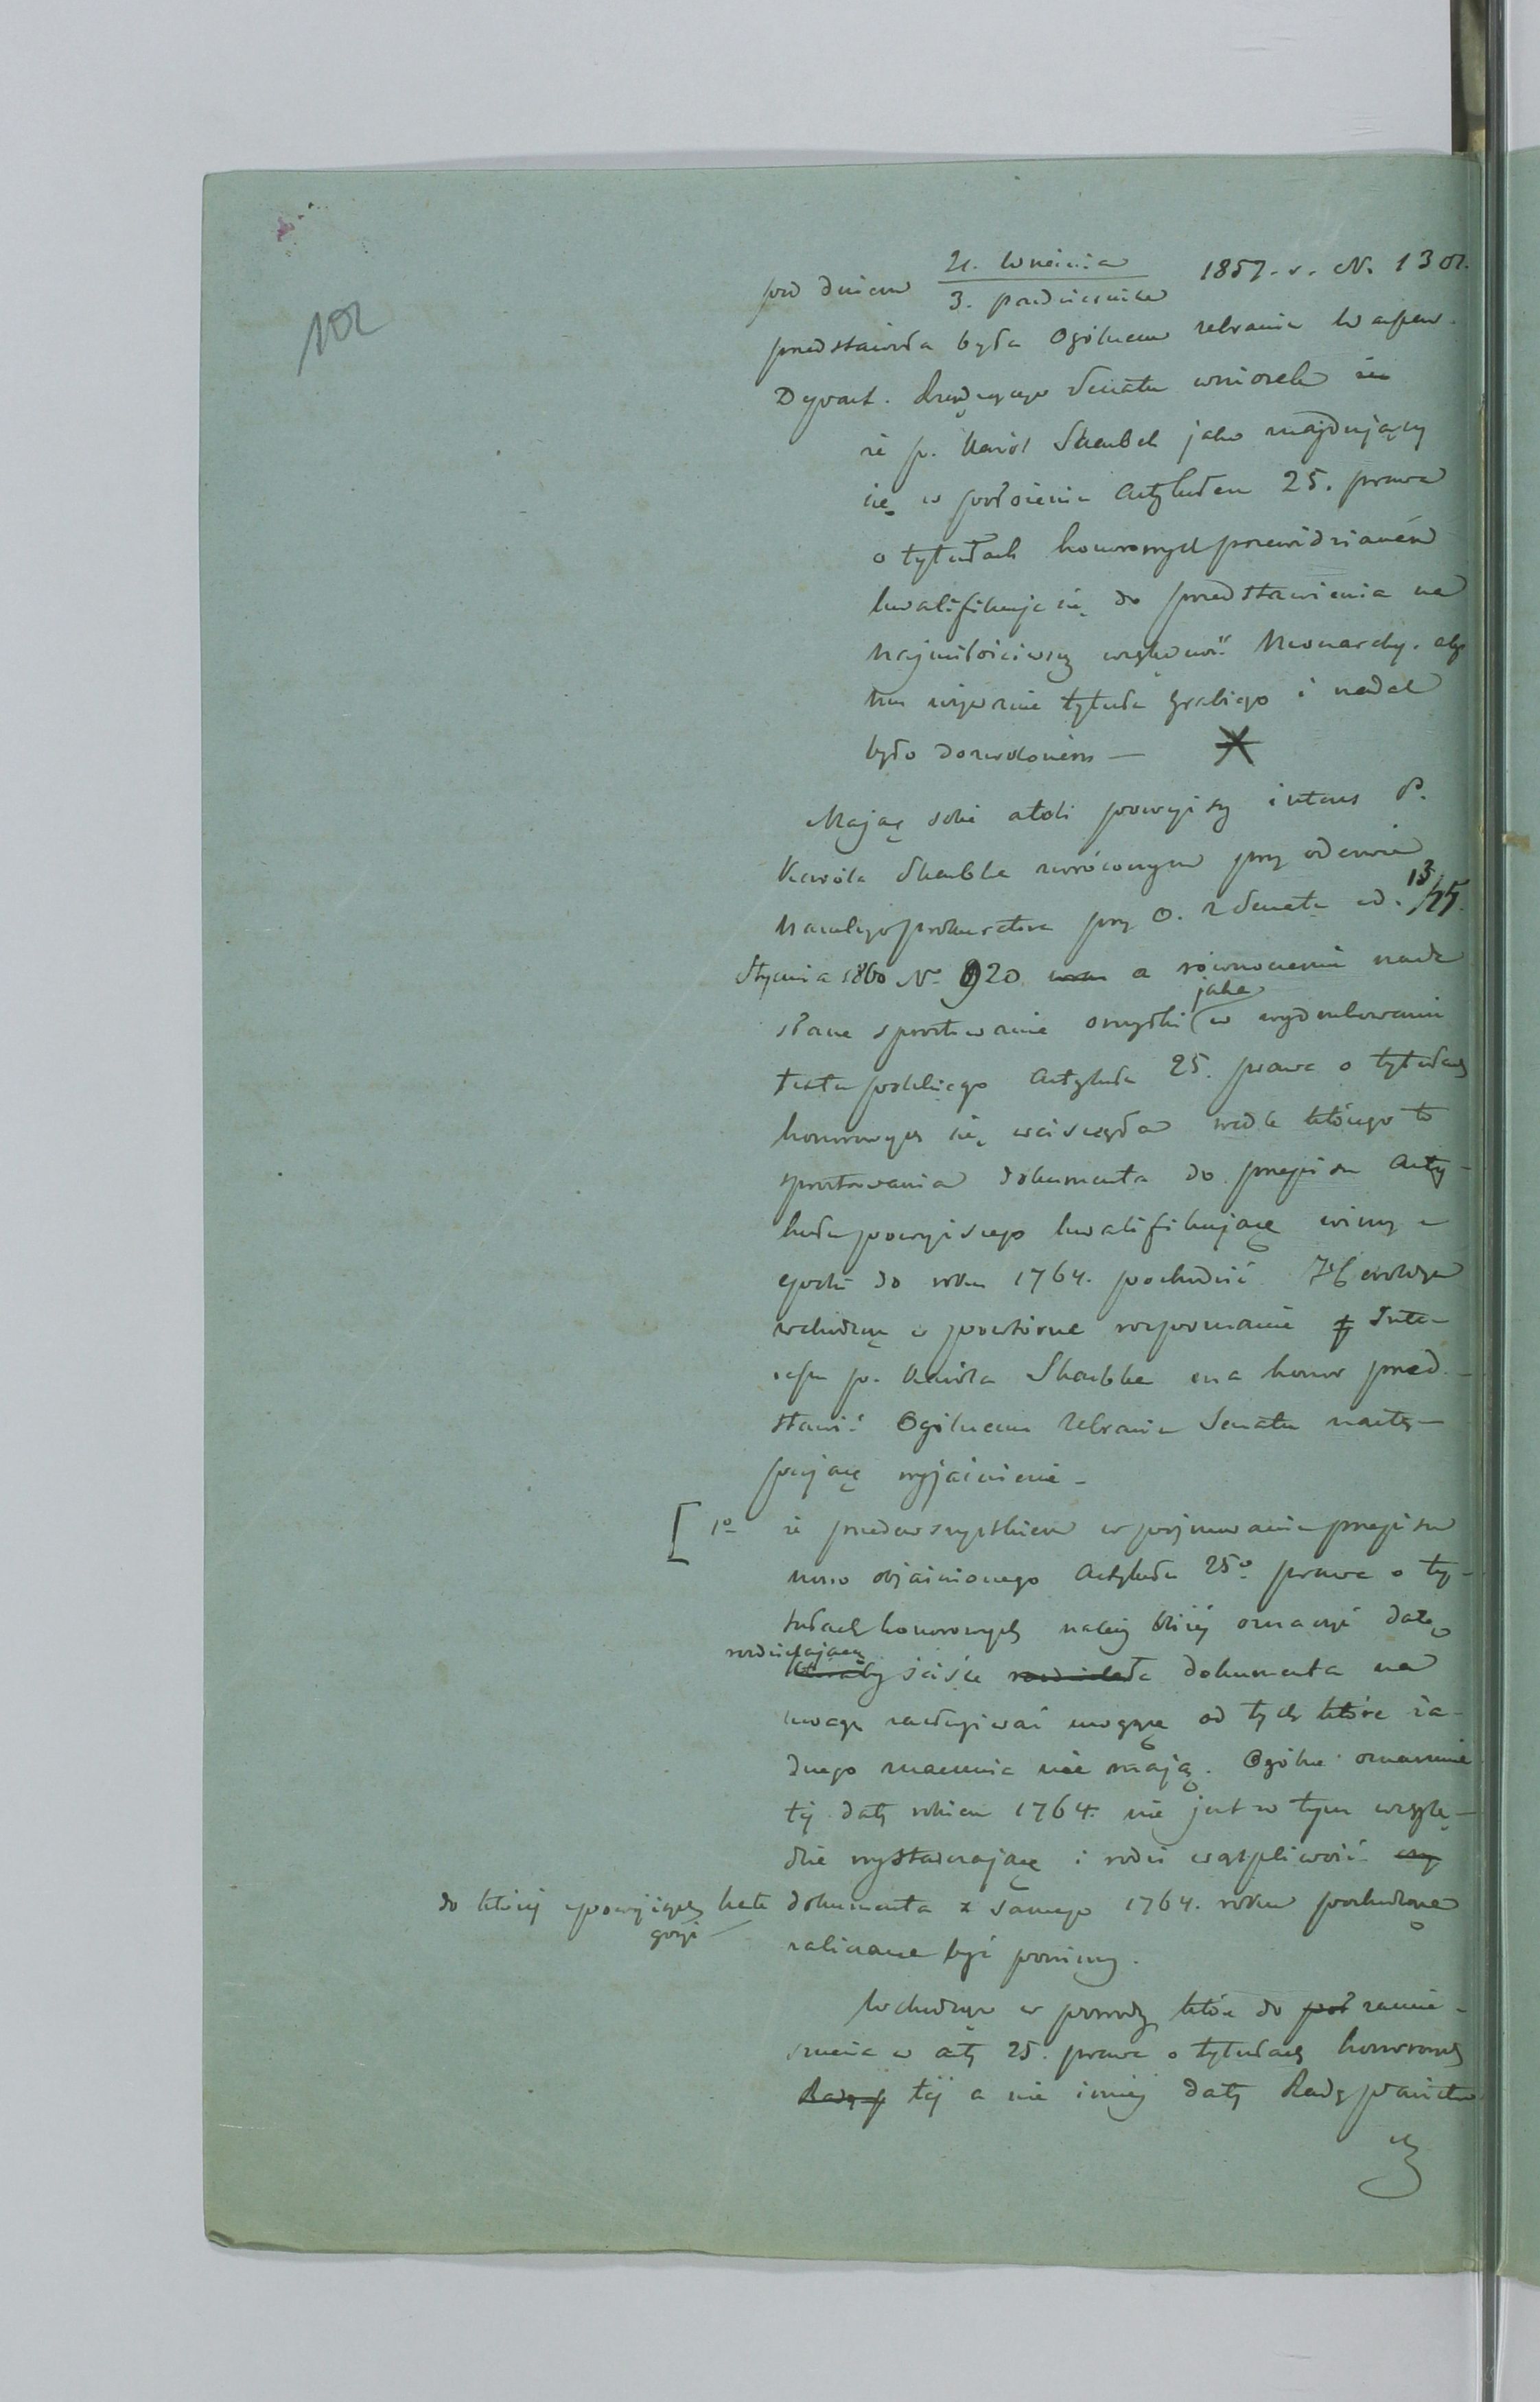 102
pod dniem 21. Września / 3. Października 1857. r. N. 1302.
przedstawiła była Ogólnemu zebraniu Warszaw.
Depart. Rządzącego Senatu wniosek że
że p. Karól Skarbek jako znajdujący
się w położeniu Artykułem 25. prawa
o tytułach honorowych przewidzianém
kwalifikuje się do przedstawienia na
Najmiłościwszy wzgląd Monarchy. aby
mu używanie tytułu Hrabiego i nadal
było dozwoloném —
Mając sobie atoli powyższy interes P.
Karóla Skarbka zwróconym przy odezwie
Naczelnego prokuratora przy O. Z Senatu z d. 13/25.
Stycznia 1860 No 920 a równocześnie nade
słane sprostowanie omyłki jaka w wydrukowaniu
textu polskiego Artykułu 25. prawa o tytułach
honorowych się wcisnęła wedle którego to
sprostowania dokumenta do przepisu Arty-
kułu powyższego kwalifikujące winny z
epoki do roku 1764. pochodzić Heroldya
wchodząc w powtórne rozpoznanie Inte-
resu p. Karóla Skarbka ma honor przed-
stawić Ogólnemu Zebraniu Senatu nastę-
pujące wyjaśnienie –
[ 1o że przedewszystkiem w pojmowaniu przepisu
nowo objaśnionego Artykułu 25o prawa o ty-
tułach honorowych należy bliżéj oznaczyć datę
rozdzielającą ściśle dokumenta na
uwagę zasługiwać mogące od tych które ża-
dnego znaczenia nie mają. Ogólne oznaczenie
téj daty rokiem 1764. nie jest w tym wzglę-
dzie wystarczające i rodzi wątpliwość
do któréj z powyższych kate
goryi
dokumenta z samego 1764. roku pochodzące
zaliczane być powinny.
Wchodząc w powody które do zamie-
szczenia w art 25. prawa o tytułach honorowych
téj a nie innéj daty Radę państwa